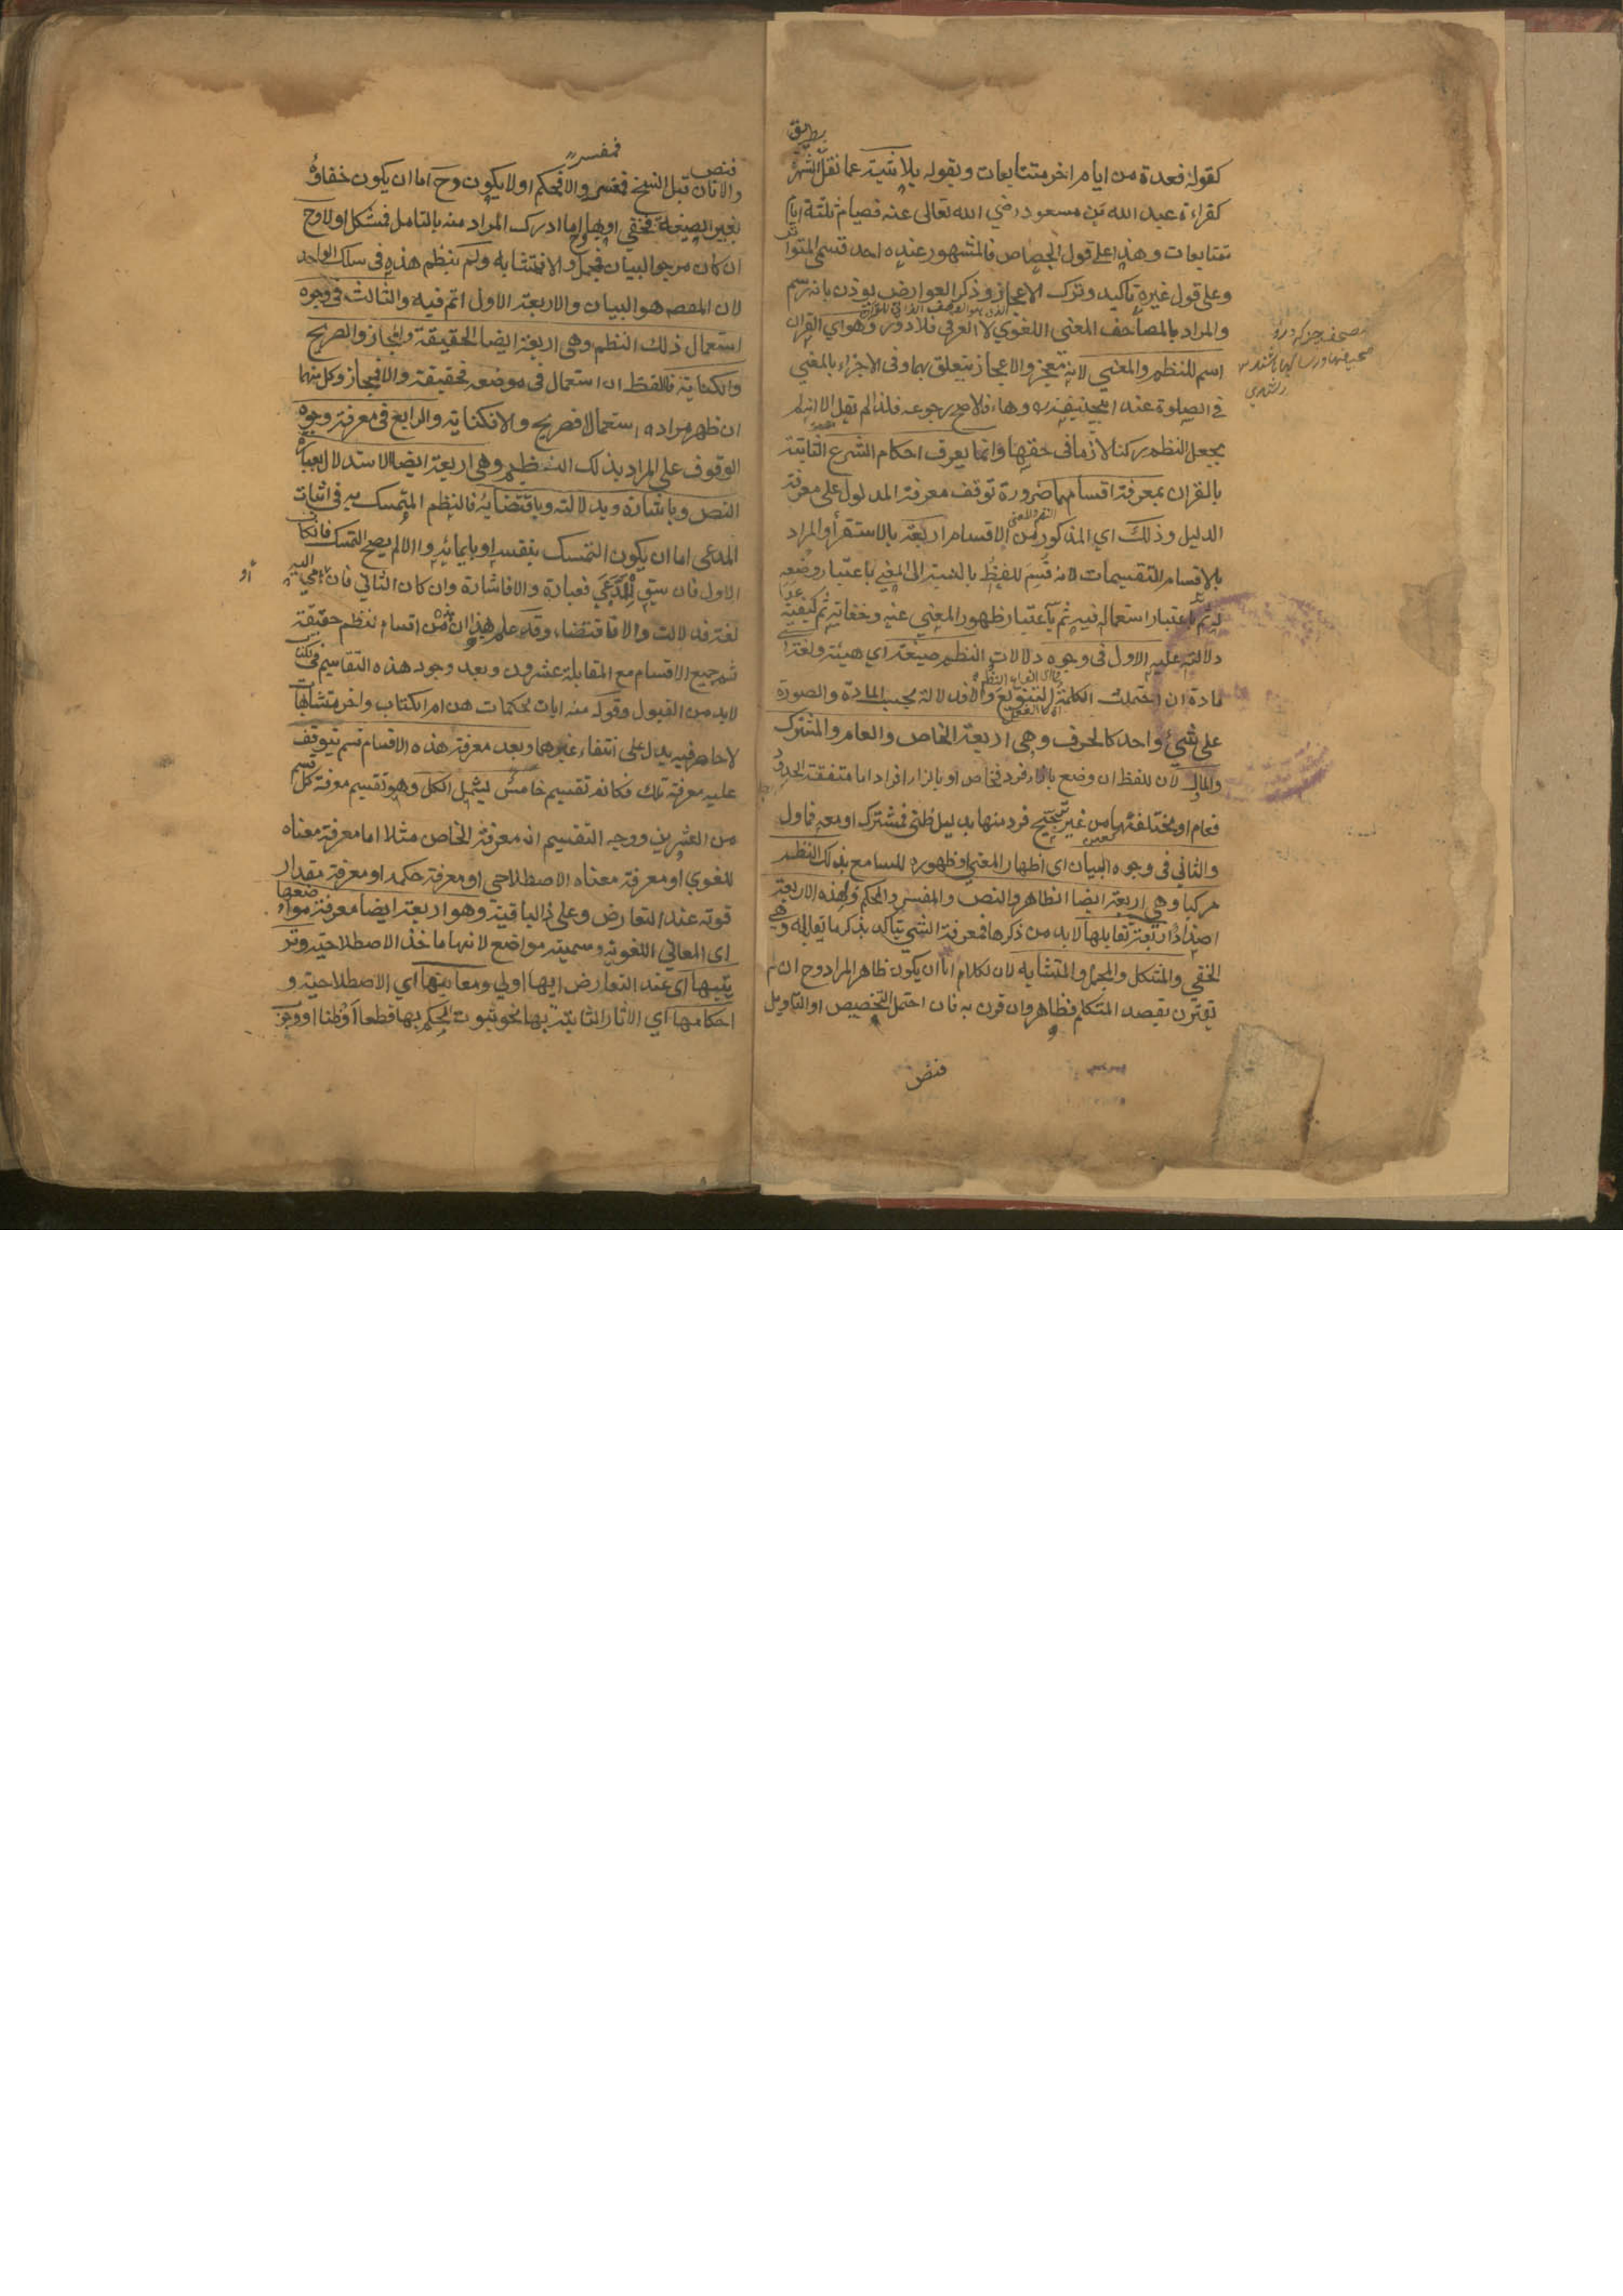 كقوله فعدة من ايام اخر متتابعات وبقوله بلا شبهة عما نقل بطريق الشهرة
كقراءة عبد الله بن مسعود رضي الله تعالى عنه فصيام ثلثة ايام
متتابعات وهذا على قول الجصاص فالمشهور عنده احد قسمي المتواتر
وعلى قول غيره تاكيد وترك الاعجاز وذكر العوارض يوذن بانه رسم
والمراد بالمصاحف المعنى اللغوي لا العرفي فلا دور وهو اي القران
اسم للنظم والمعنى لانه معجز والاعجاز يتعلق بهما وفي الاجزاء بالمعنى
في الصلوة عند ابيحنيفة رجوعه فلذا لم يقل الا انه لم
يجعل النظم ركنا لازما في حقها وانما يعرف احكام الشرع الثابتة
بالقران بمعرفة اقسامهما ضرورة توقف معرفة المدلول على معرفة
الدليل وذلك اي المذكور من الاقسام اربعة بالاستقراء والمراد
بالاقسام التقسيمات لانه قسم اللفظ بالنسبة الى المعنى باعتبار وضعه
له ثم باعتبار استعماله فيه ثم باعتبار ظهور المعنى عنه وخفائه ثم كيفية
دلالته عليه الاول في وجوه دلالات النظم صيغة اي هيئة ولغة اي
مادة ان احتملت الكلمة التنويع والا فدلالة بحسب المادة والصورة
على شيء واحد كالحرف وهي اربعة الخاص والعام والمشترك
والماول لان اللفظ ان وضع بازاء فرد فخاص او بازاء افراد اما متفقة الحدود
فعام او مختلفتها من غير ترجيح فرد منها بدليل ظني فمشترك او معه فاول
والثاني في وجوه البيان اي اظهار المعنى وظهوره للسامع بذلك النظم
مركبا وهي اربعة ايضا الظاهر والنص والمفسر والمحكم ولهذه الاربعة
اضداد اربعة تقابلها لابد من ذكرها فمعرفة الشيء يتاكد بذكر ما يقابله وهي
الخفي والمشكل والمجمل والمتشابه لان الكلام اما ان يكون ظاهر المراد وح ان لم
يقترن بقصد المتكلم فظاهر وان قرن به فان احتمل التخصيص او التاويل
فنص
فنص
والا فان قبل النسخ فمفسر والا فمحكم او لا يكون وح اما ان يكون خفاؤه
بغير الصيغة فخفي او بها وح اما ادرك المراد منه بالتامل فمشكل او لا وح
ان كان مرجو البيان فمجمل والا فمتشابه ولم ينظم هذه في سلك الواحد
لان المقصم هو البيان والاربعة الاول اتم فيه والثالث في وجوه
استعمال ذلك النظم وهي اربعة ايضا الحقيقة والمجاز والصريح
والكناية فاللفظ ان استعمل في موضعه فحقيقة والا فمجاز وكل منهما
ان ظهر مراده استعمالا فصريح والا فكناية والرابع في معرفة وجوه
الوقوف على المراد بذلك النظم وهي اربعة ايضا الاستدلال بعبارة
النص وباشارته وبدلالته وباقتضائه فالنظم المتمسك به في اثبات
المدعى اما ان يكون التمسك بنفسه او بايمائه والا لم يصح التمسك فان كان
الاول فان سيق للمدعي فعبارة والا فاشارة وان كان الثاني فان
لغة فدلالة والا فاقتضاء وقد علم هذا ان من اقسام النظم حقيقة
ثم جميع الاقسام مع المقابلة عشرون وبعد وجود هذه التقاسيم
لابد من القبول وقوله منه ايات محكمات هن ام الكتاب واخر متشابهات
لا حاصر فيه يدل على انتفاء غيرهما وبعد معرفة هذه الاقسام قسم يتوقف
عليه معرفة تلك فكانه تقسيم خامس ليشمل الكل وهو تقسيم معرفة كل قسم
من العشرين ووجه التقسيم ان معرفة الخاص مثلا اما معرفة معناه
اللغوي او معرفة معناه الاصطلاحي او معرفة حكمه او معرفة مقدار
قوته عند التعارض وعلى ذا الباقية وهو اربعة ايضا معرفة مواضعها
اي المعاني اللغوية وسميته مواضع لانها ماخذ الاصطلاحية وتر
تيبها اي عند التعارض ايها اولى ومعانيها اي الاصطلاحية و
احكامها اي الاثار الثابتة بها نحو ثبوت الحكم بها قطعا او ظنا او وجوب